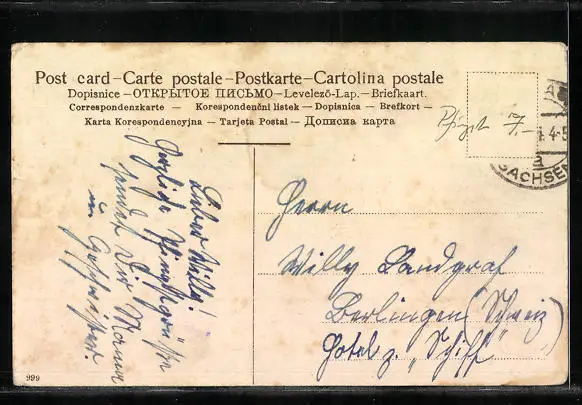 Post card – Carte postale – Postkarte – Cartolina postale
Dopisnice – ОТКРЫТОЕ ПИСЬМО – Levelező-Lap. – Briefkaart.
Correspondenzkarte – Korespondenční listek – Dopisnica – Brefkort –
Karta Korespondencyjna – Tarjeta Postal – Дописна карта
Pfingst 7.-
SACHSEN
Lieber Willy!
Herzliche Pfingstgrüße
sendet Dir Mama
u. Geschwister.
Herrn
Willy Landgraf
Berlingen (Schweiz)
Hotel z. "Schiff"
999